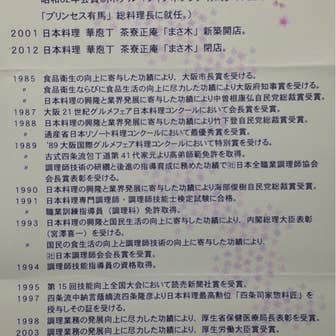 「プリンセス有馬」総料理長に就任。）
2001 日本料理 華庖丁 茶寮正庵「まさ木」新築開店。
2012 日本料理 華庖丁 茶寮正庵「まさ木」閉店。
1985 食品衛生の向上に寄与した功績により、大阪市長賞を受ける。
〃 食品衛生ならびに食品生活の向上に尽力した功績により大阪府知事賞を受ける。
〃 日本料理の興隆と業界発展に寄与した功績により中曽根康弘自民党総裁賞受賞。
1987 大阪21世紀グルメフェア日本料理コンクールにおいて会長賞を受賞。
1988 日本料理の興隆と業界発展に寄与した功績により竹下登自民党総裁賞受賞。
〃 通産省日本リゾート料理コンクールにおいて最優秀賞を受賞。
1989 '89大阪国際グルメフェア料理コンクールにおいて特別賞を受ける。
〃 古式四条流包丁道第41代家元より高弟師範免許を取得。
〃 調理師技術の研鑽と後進の指導育成に務めた功績で㈳日本全職業調理師協会会長表彰を受ける。
1990 日本料理の興隆と業界発展に寄与した功績により海部俊樹自民党総裁賞受賞。
1991 日本料理専門調理師・調理技能士検定試験に合格。
〃 職業訓練指導員（調理科）免許取得。
1993 日本料理の興隆と国民生活の向上に寄与した功績により、内閣総理大臣表彰（宮澤喜一）を受ける。
〃 国民の食生活の向上と調理師技術の向上に尽力した功績により、㈳日本調理師会会長賞を受賞。
1994 調理師技能指導員の資格取得。
1995 第15回技能向上全国大会において読売新聞社賞を受賞。
1997 四条流中納言藤嶋流四条隆彦より日本料理最高勲位「四条司家惣料匠」を授与しその証を受ける。
1998 調理業務の発展向上に尽力した功績により、厚生省保健医療局長表彰を受賞。
2003 調理業務の発展向上に尽力した功績により、厚生労働大臣表彰を受賞。